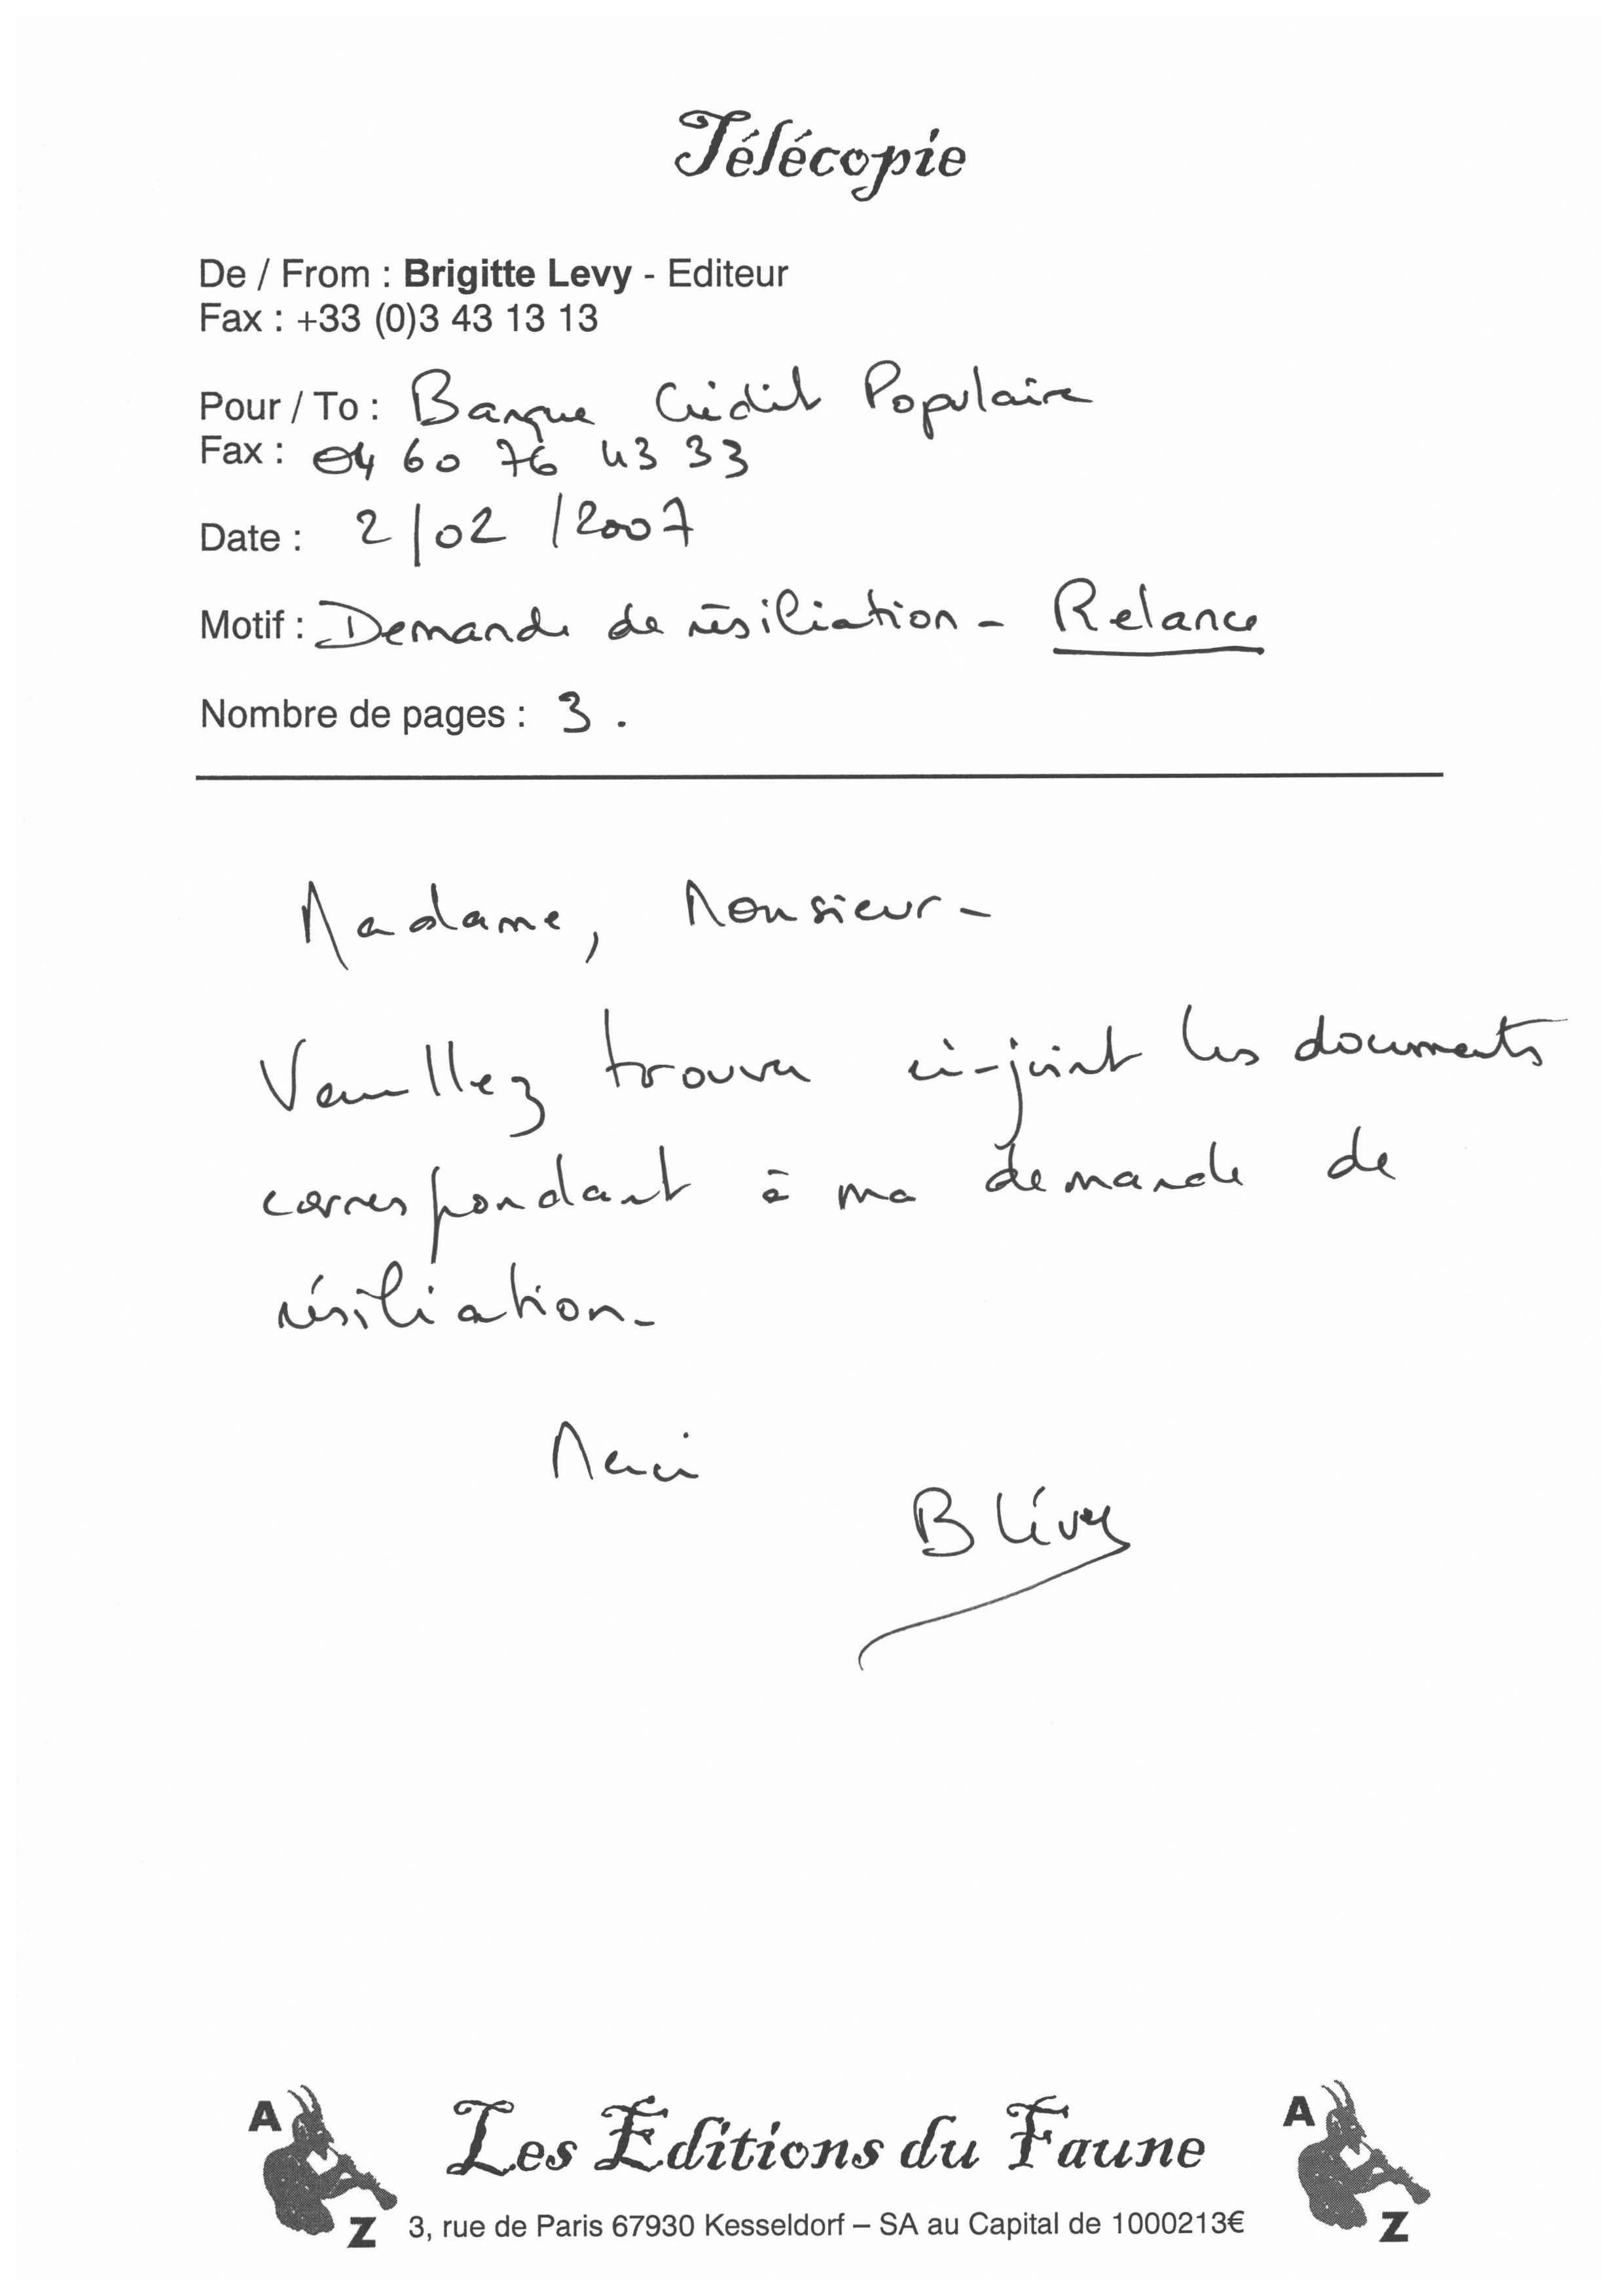 Télécopie
De / From : Brigitte Levy - Editeur
Fax : +33 (0)3 43 13 13
Pour / To : Banque Crédit Populaire
Fax : 04 60 76 43 33
Date : 2/02/2007
Motif : Demande de résiliation - Relance
Nombre de pages : 3.
Madame, Monsieur -
Veuillez trouver ci-joint les documents
correspondant à ma demande de
résiliation -
Merci
B Lévy
A Z
Les Editions du Faune
3, rue de Paris 67930 Kesseldorf – SA au Capital de 1000213€
A Z